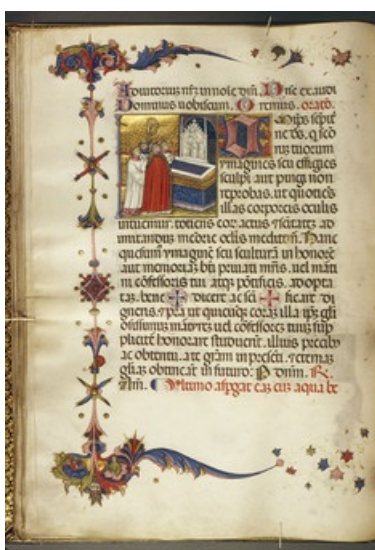 Adiutorium nr̄m in noīe dn̄i. Dn̄e exaudi
Dominus uobiscum. Oremus. orato.
s septē
ne ds̄. q̄ scō
rū tuorum
ymagines seu effigies
sculpi aut pingi non
reprobas. ut quotiēs
illas corporeis oculis
intuemur. totiens eor̄ actus ⁊ scītatē ad
imitandū memorie oculis meditem̄. Hanc
quesum̄ ymaginē seu sculturā in honorē
aut memoriā bt̄i
confessoris tui atq; pōtificis. adopta
tā. bene ✠ dicere ⁊ sc̄i ✠ ficare di
gneris. ⁊ pr̄a ut quicūq; corā illa
martyrē uel cōfessorē tuū sup
pliciter honorare studuerit. illius precibȳ
⁊ obtentu. a te grām in presēti. ⁊ eternā
glīaȝ obtineat in futuro. P dn̄m. R.
Am̄. Ultimo aspgat eaȝ cū aqua be